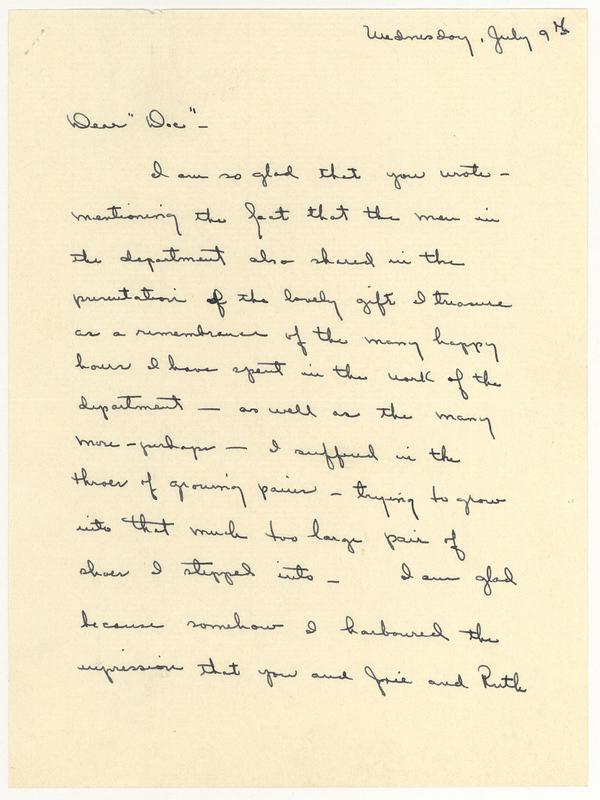 Wednesday, July 9th
Dear "Doc" –
I am so glad that you wrote –
mentioning the fact that the men in
the department also shared in the
presentation of the lovely gift I treasure
as a remembrance of the many happy
hours I have spent in the work of the
department — as well as the many
more – perhaps — I suffered in the
throes of growing pains – trying to grow
into that much too large pair of
shoes I stepped into – I am glad
because somehow I harboured the
impression that you and and Ruth